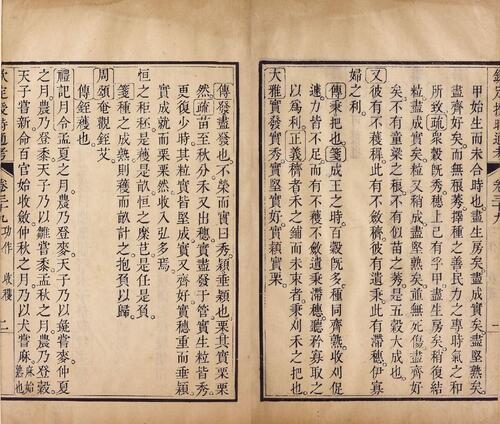 甲始生而未合時也。盡生房矣盡成實矣盡堅熟矣。
盡齊好矣而無稂莠擇種之善民力之專時氣之和
所致。疏衆穀既秀穗上已有孚甲盡生房矣稍後結
粒盡成實矣粒又稍成盡堅熟矣並無死傷盡齊好
矣不有童粱之稂不有似苗之莠是五穀大成也。
又彼有不穫穉此有不斂穧彼有遺秉此有滯穗伊寡
婦之利。
傳秉把也。箋成王之時百穀既多種同齊熟收刈促
遽力皆不足而有不穫不斂遺秉滯穗聽矜寡取之
以爲利。正義穧者禾之鋪而未束者秉刈禾之把也。
大雅實發實秀實堅實好實穎實栗。
傳發盡發也。不榮而實曰秀。穎垂穎也。栗其實栗栗
然。疏苗至秋分禾又出穗。實盡發于管實生粒皆秀
更復少時其粒實皆堅成實又齊好實穗重而垂穎
實成就而栗栗然收入弘多焉。
恒之秬秠是穫是畝。恒之穈芑是任是負。
箋種之成熟則穫而畝計之抱負以歸。
周頌奄觀銍艾
傳銍穫也。
禮記月令孟夏之月農乃登麥天子乃以彘嘗麥仲夏
之月農乃登黍天子乃以雛嘗黍孟秋之月農乃登穀
天子嘗新命百官始收斂仲秋之月以犬嘗麻麻始熟也
欽定授時通考 卷三十九 功作 收穫 二